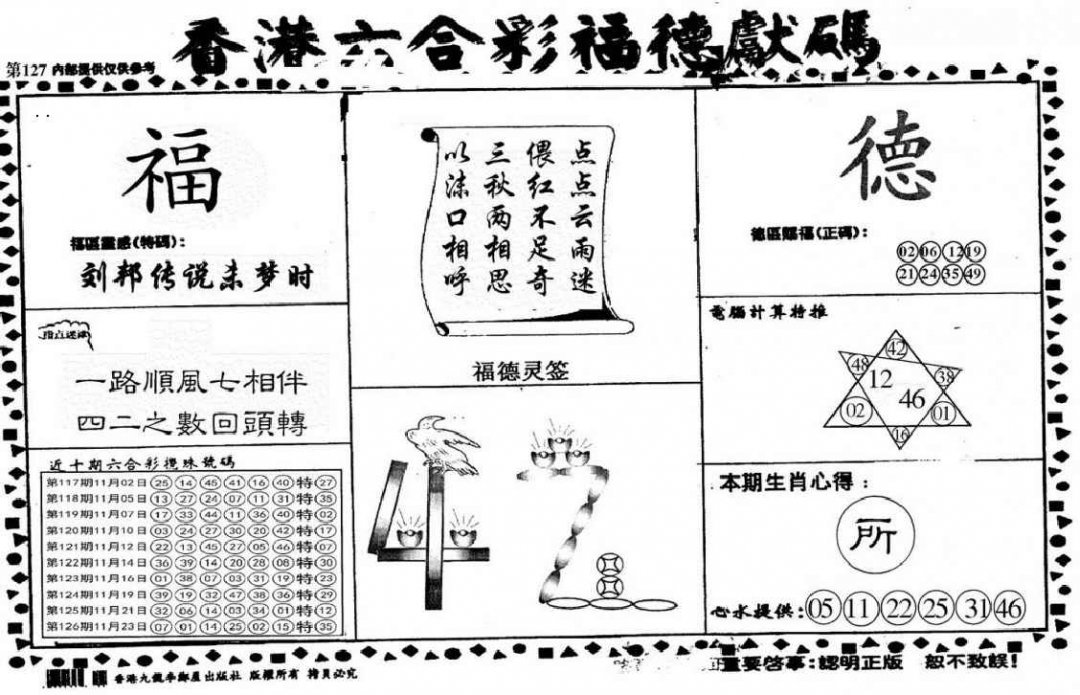 香港六合彩福德獻碼
第127 內部提供仅供参考
福
福區靈感(特碼):
刘邦传说未梦时
指点迷津
一路順風七相伴
四二之數回頭轉
近十期六合彩攪珠號碼
第117期11月02日 25 14 45 41 16 40 特 27
第118期11月05日 13 27 24 07 11 31 特 35
第119期11月07日 17 33 44 11 36 40 特 02
第120期11月10日 03 24 27 30 20 42 特 17
第121期11月12日 22 13 45 27 05 46 特 07
第122期11月14日 36 39 14 20 28 08 特 30
第123期11月16日 01 38 07 03 31 19 特 23
第124期11月19日 39 19 32 47 38 36 特 29
第125期11月21日 32 06 14 03 34 01 特 12
第126期11月23日 07 01 14 25 02 15 特 35
点点云雨迷
偎红不足奇
三秋两相思
以沫口相呼
福德灵签
42
德
德區賜福(正碼):
02 06 12 19
21 24 35 49
電腦計算特推
42
48 38
12 46
02 01
16
本期生肖心得:
所
心水提供: 05 11 22 25 31 46
香港九龍李鄭屋出版社 版權所有 拷貝必究
重要啓事:認明正版 恕不致誤!